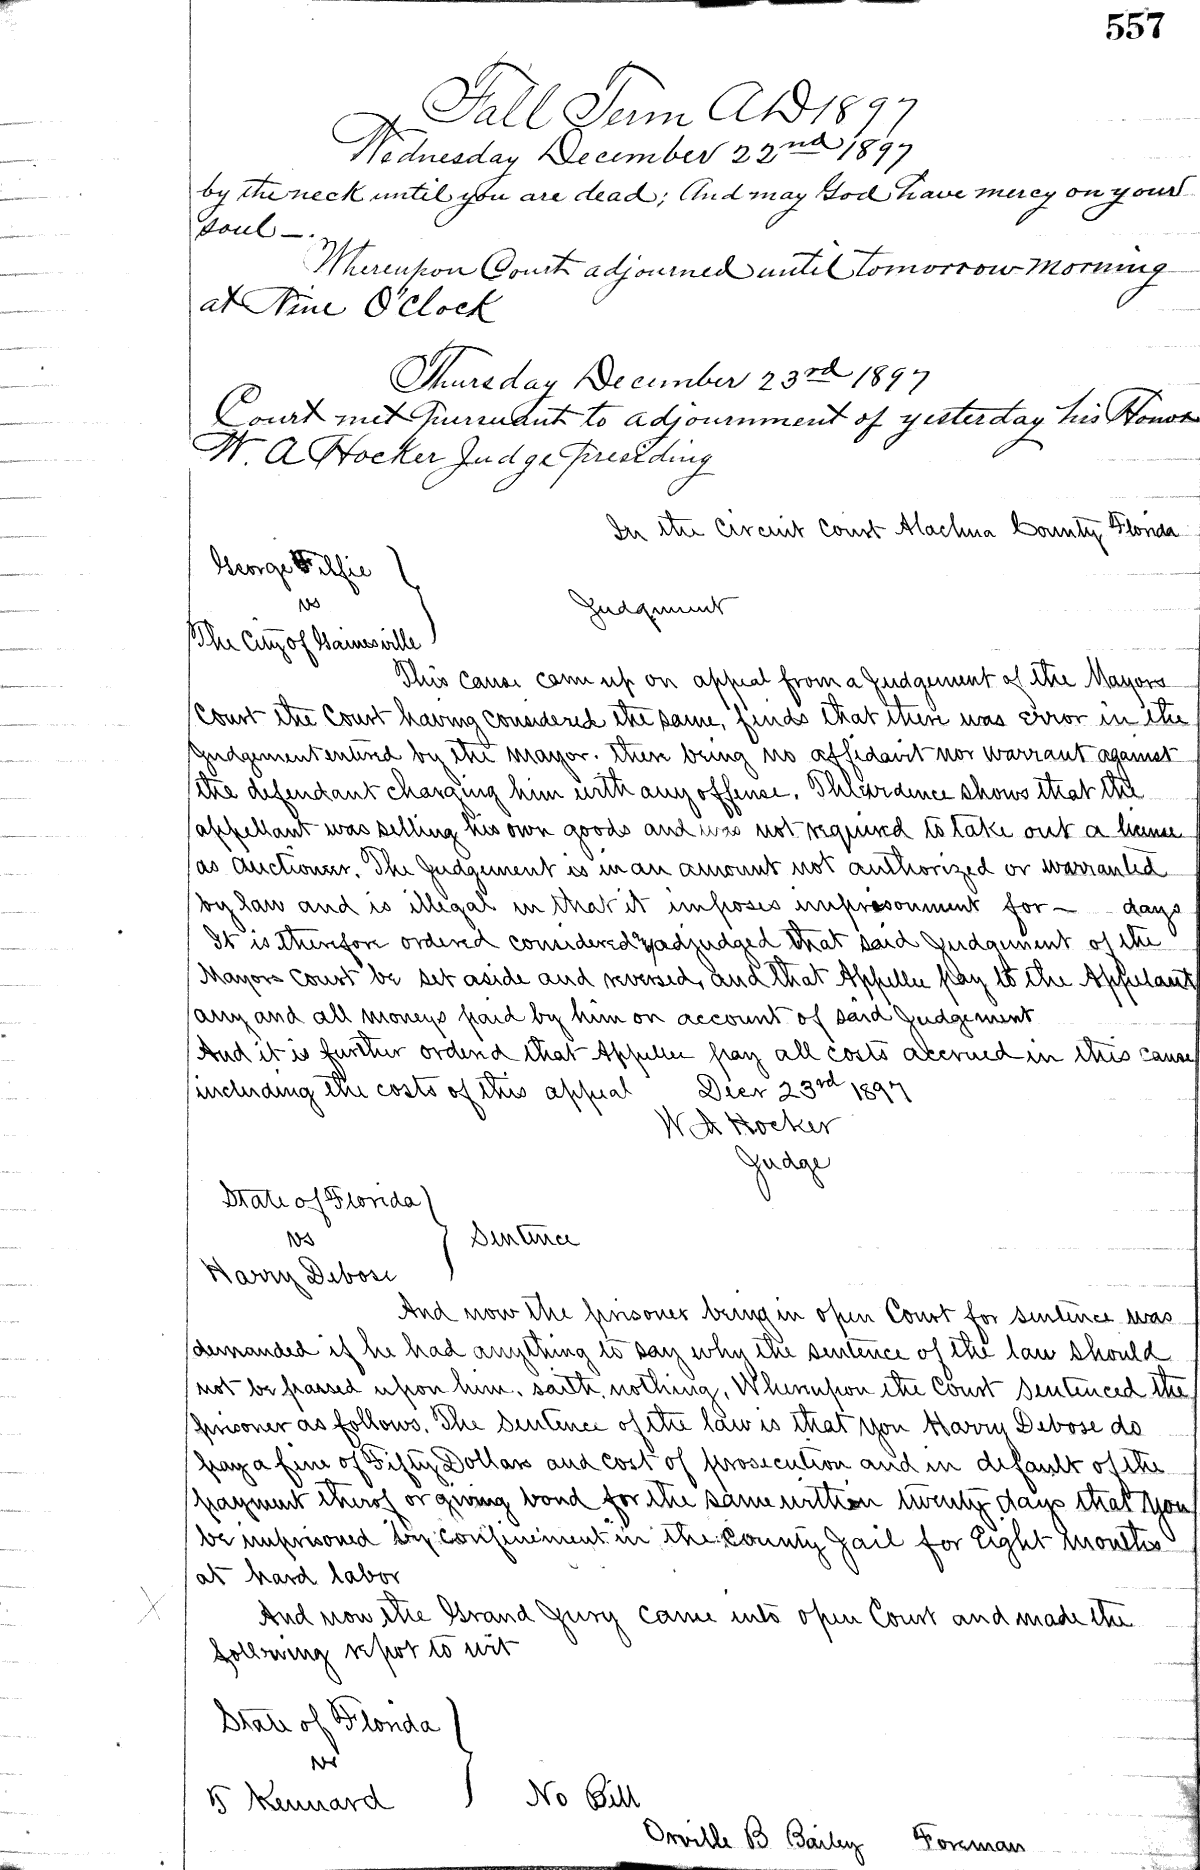 557
Fall Term AD 1897
Wednesday December 22nd 1897
by the neck until you are dead; And may God have mercy on your
soul —.
Whereupon Court adjourned until tomorrow morning
at Nine O'Clock
Thursday December 23rd 1897
Court met pursuant to adjournment of yesterday his Honor
W. A Hocker Judge presiding
In the Circuit Court Alachua County Florida
George
vs
Judgment
The City of Gainesville
This cause came up on appeal from a Judgement of the Mayors
Court the Court having considered the same, finds that there was error in the
Judgement entered by the mayor. there being no affidavit nor warrant against
the defendant charging him with any offense. The evidence shows that the
appellant was selling his own goods and was not required to take out a license
as Auctioneer. The Judgement is in an amount not authorized or warranted
by law and is illegal in that it imposes imprisonment for — days
It is therefore ordered considered & adjudged that said Judgement of the
Mayors Court be set aside and reversed, and that Appellee pay to the Appelant
any and all moneys paid by him on account of said Judgement
And it is further orderd that Appellee pay all costs accrued in this cause
including the costs of this appeal Decr 23rd 1897
W A Hocker
Judge
State of Florida
vs
Sentence
Harry Debose
And now the prisoner being in open Court for sentence was
demanded if he had anything to say why the sentence of the law should
not be passed upon him. saith nothing. Whereupon the Court sentenced the
prisoner as follows. The sentence of the law is that you Harry Debose do
pay a fine of Fifty Dollars and cost of prosecution and in default of the
payment therof or giving bond for the same within twenty days that you
be imprisoned by confinement in the county Jail for Eight Months
at hard labor
And now the Grand Jury came into open Court and made the
following repot to wit
State of Florida
vs
Kennard
No Bill
Orville B Bailey Foreman